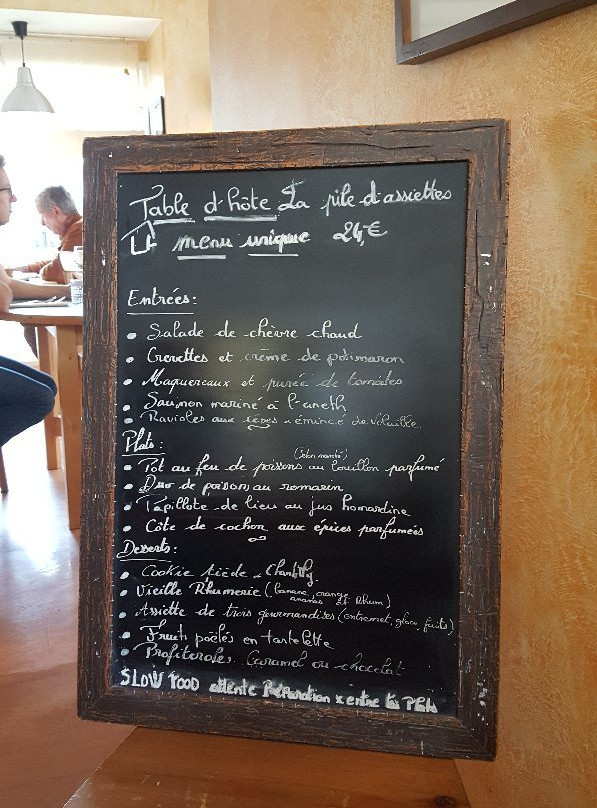 Table d'hôte La pile d'assiettes
menu unique 24,€
Entrées :
• Salade de chèvre chaud
• Crevettes et crème de potimaron
• Maquereaux et purée de tomates
• Saumon mariné à l'aneth
• Ravioles aux cèpes émincé de volaille
Plats :
(selon marché)
• Pot au feu de poissons au bouillon parfumé
• Duo de poisson au romarin
• Papillote de lieu au jus homardine
• Côte de cochon aux épices parfumées
Desserts :
• Cookie tiède Chantilly
• Vieille Rhumerie (banane, orange
ananas et Rhum)
• Assiette de trois gourmandises (entremet, glace, fruits)
• Fruits poêlés en tartelette
• Profiteroles Caramel ou chocolat
SLOW FOOD attente Préparation entre les Plats